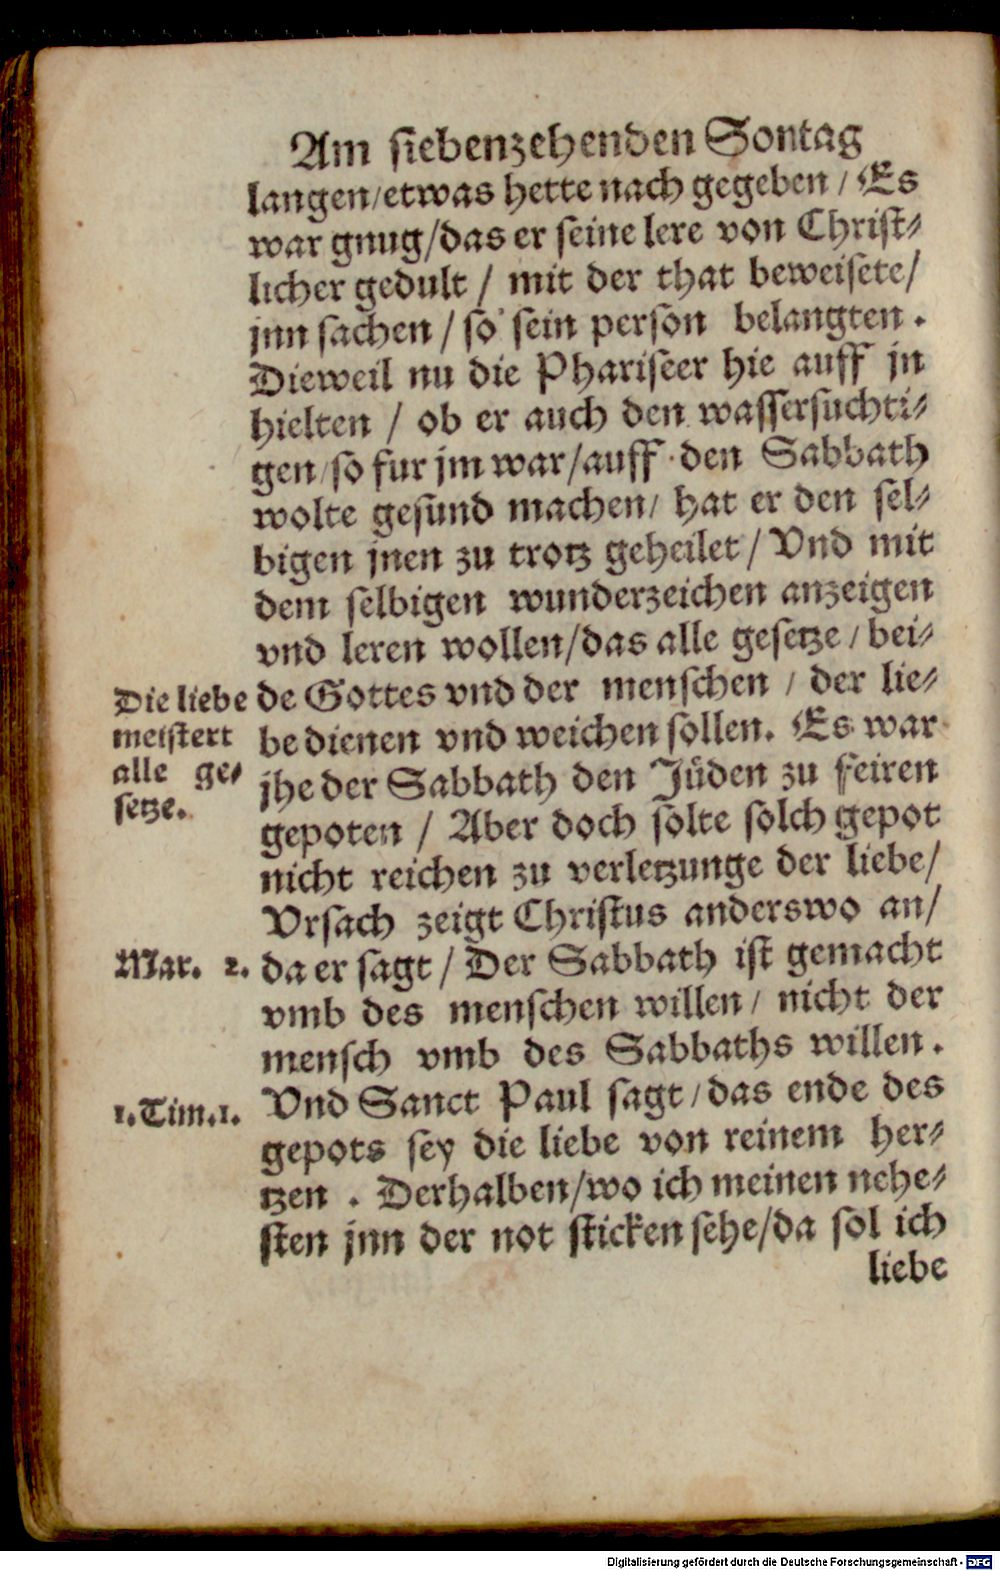 Am siebenzehenden Sontag
langen/etwas hette nach gegeben / Es
war gnug/das er seine lere von Christ⸗
licher gedult / mit der that beweisete/
jnn sachen / so sein person belangten.
Dieweil nu die Phariseer hie auff jn
hielten / ob er auch den wassersuchti⸗
gen/so fur jm war/auff den Sabbath
wolte gesund machen/ hat er den sel⸗
bigen jnen zu trotz geheilet / Vnd mit
dem selbigen wunderzeichen anzeigen
vnd leren wollen/das alle gesetze / bei⸗
de Gottes vnd der menschen / der lie⸗
be dienen vnd weichen sollen. Es war
jhe der Sabbath den Jüden zu feiren
gepoten / Aber doch solte solch gepot
nicht reichen zu verletzunge der liebe/
Vrsach zeigt Christus anderswo an/
da er sagt / Der Sabbath ist gemacht
vmb des menschen willen / nicht der
mensch vmb des Sabbaths willen.
Vnd Sanct Paul sagt / das ende des
gepots sey die liebe von reinem her⸗
tzen . Derhalben/wo ich meinen nehe⸗
sten jnn der not sticken sehe/da sol ich
liebe
Die liebe
meistert
alle ge⸗
setze.
Mar. 2.
1.Tim.1.
Digitalisierung gefördert durch die Deutsche Forschungsgemeinschaft - DFG